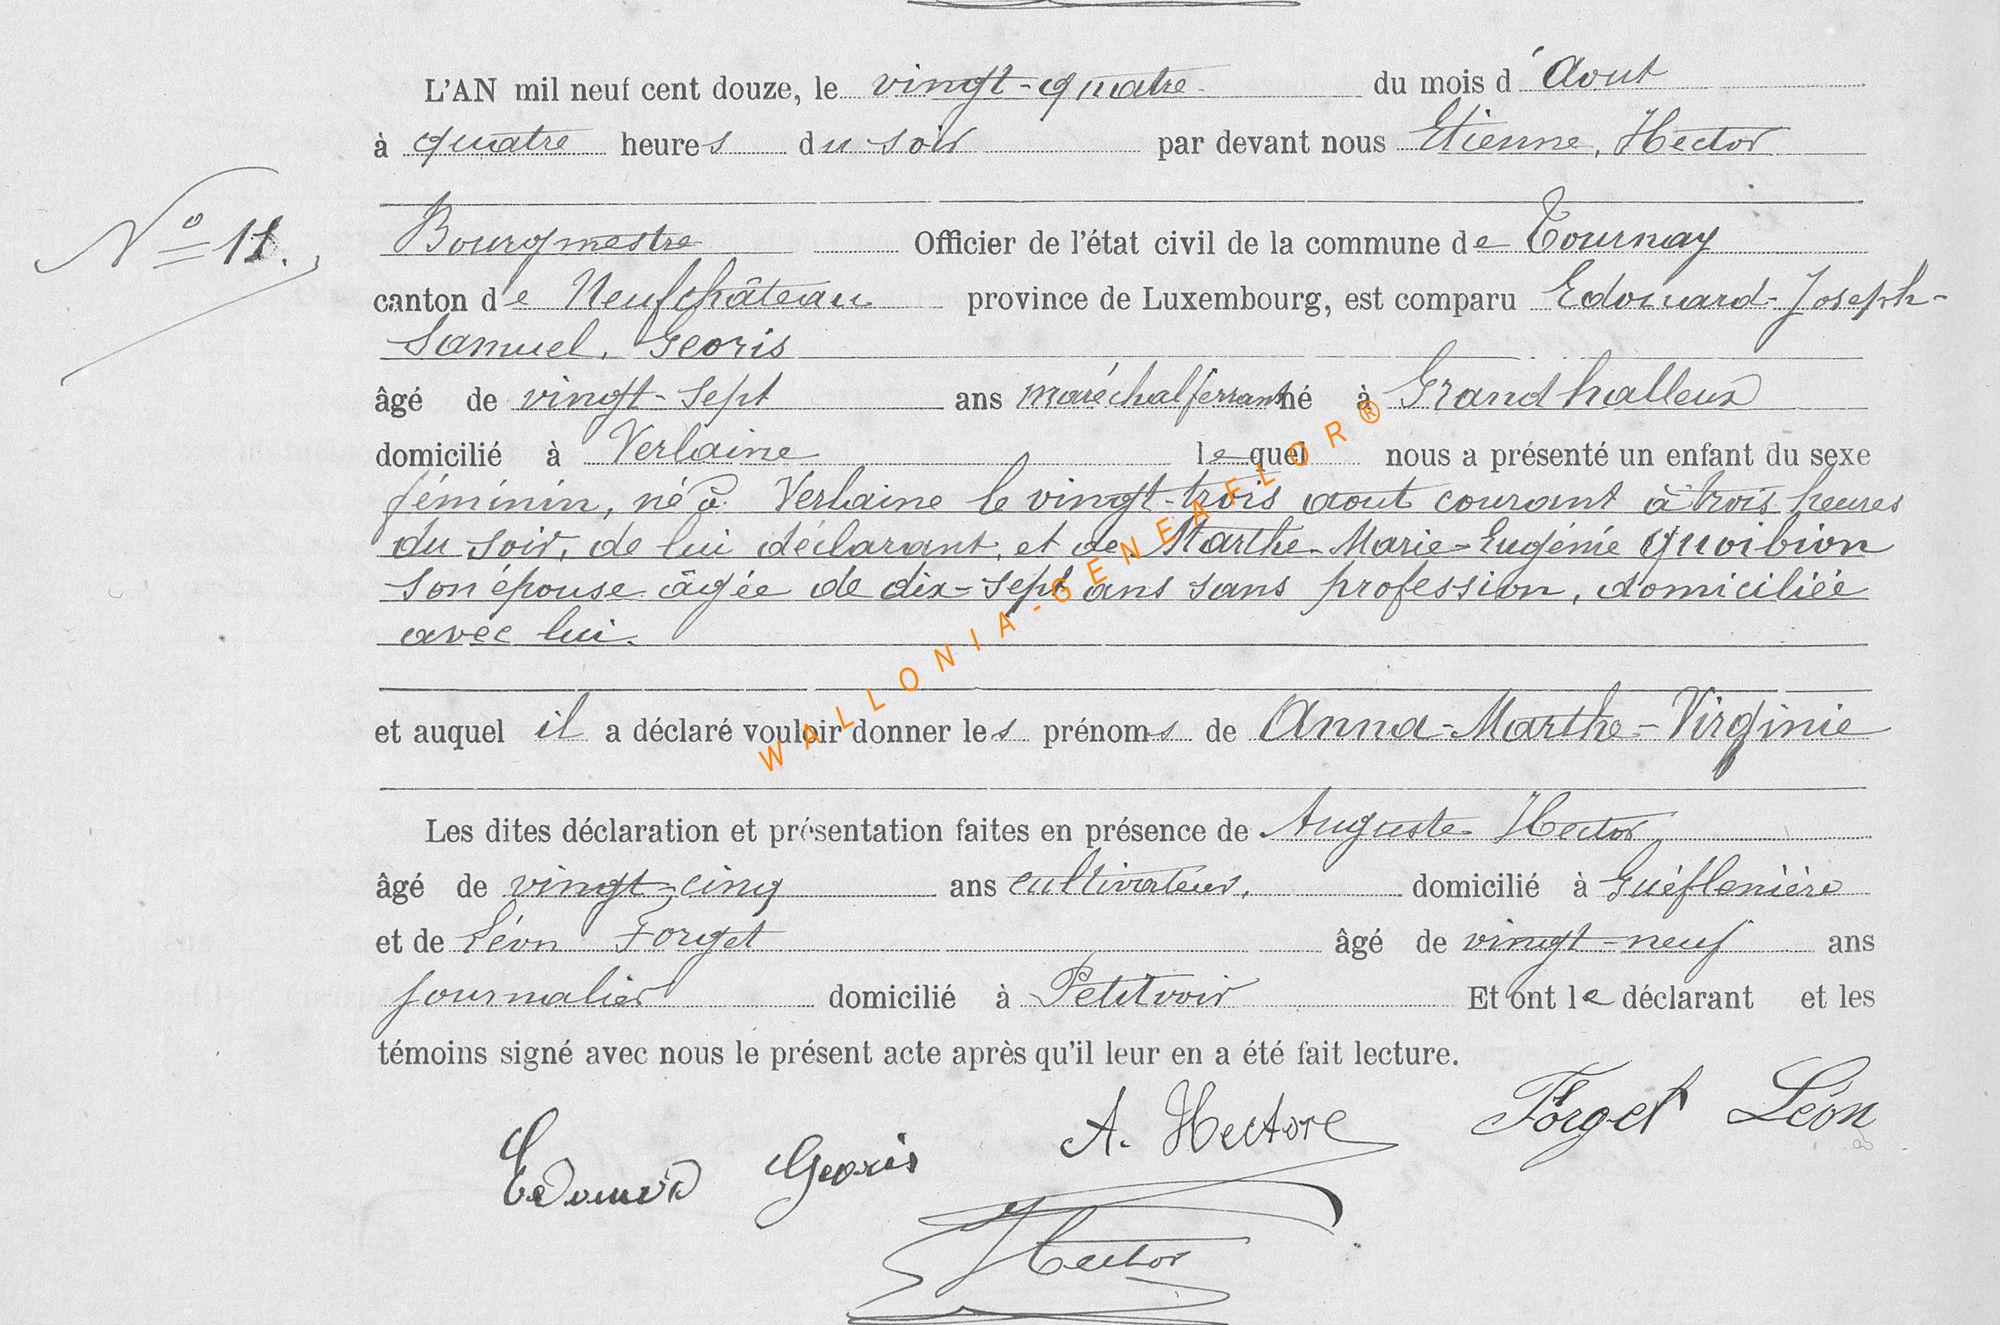 L'AN mil neuf cent douze, le vingt-quatre du mois d'Aout
à quatre heures du soir par devant nous Etienne, Hector
N° 11.
Bourgmestre Officier de l'état civil de la commune de Tournay
canton de Neufchâteau province de Luxembourg, est comparu Edouard-Joseph-
Samuel, Georis
âgé de vingt-sept ans maréchal ferrant né à Grandhalleux
domicilié à Verlaine lequel nous a présenté un enfant du sexe
féminin, né à Verlaine le vingt-trois aout courant à trois heures
du soir, de lui déclarant, et de Marthe-Marie-Eugénie Quoibion
son épouse âgée de dix-sept ans sans profession, domiciliée
avec lui.
et auquel il a déclaré vouloir donner les prénoms de Anna-Marthe-Virginie
Les dites déclaration et présentation faites en présence de Auguste Hector
âgé de vingt-cinq ans cultivateur, domicilié à
et de Léon Forget âgé de vingt-neuf ans
journalier domicilié à Petitvoir Et ont le déclarant et les
témoins signé avec nous le présent acte après qu'il leur en a été fait lecture.
Edouard Georis A. Hectore Forget Léon
Hector
WALLONIA-GENEAFLOR®